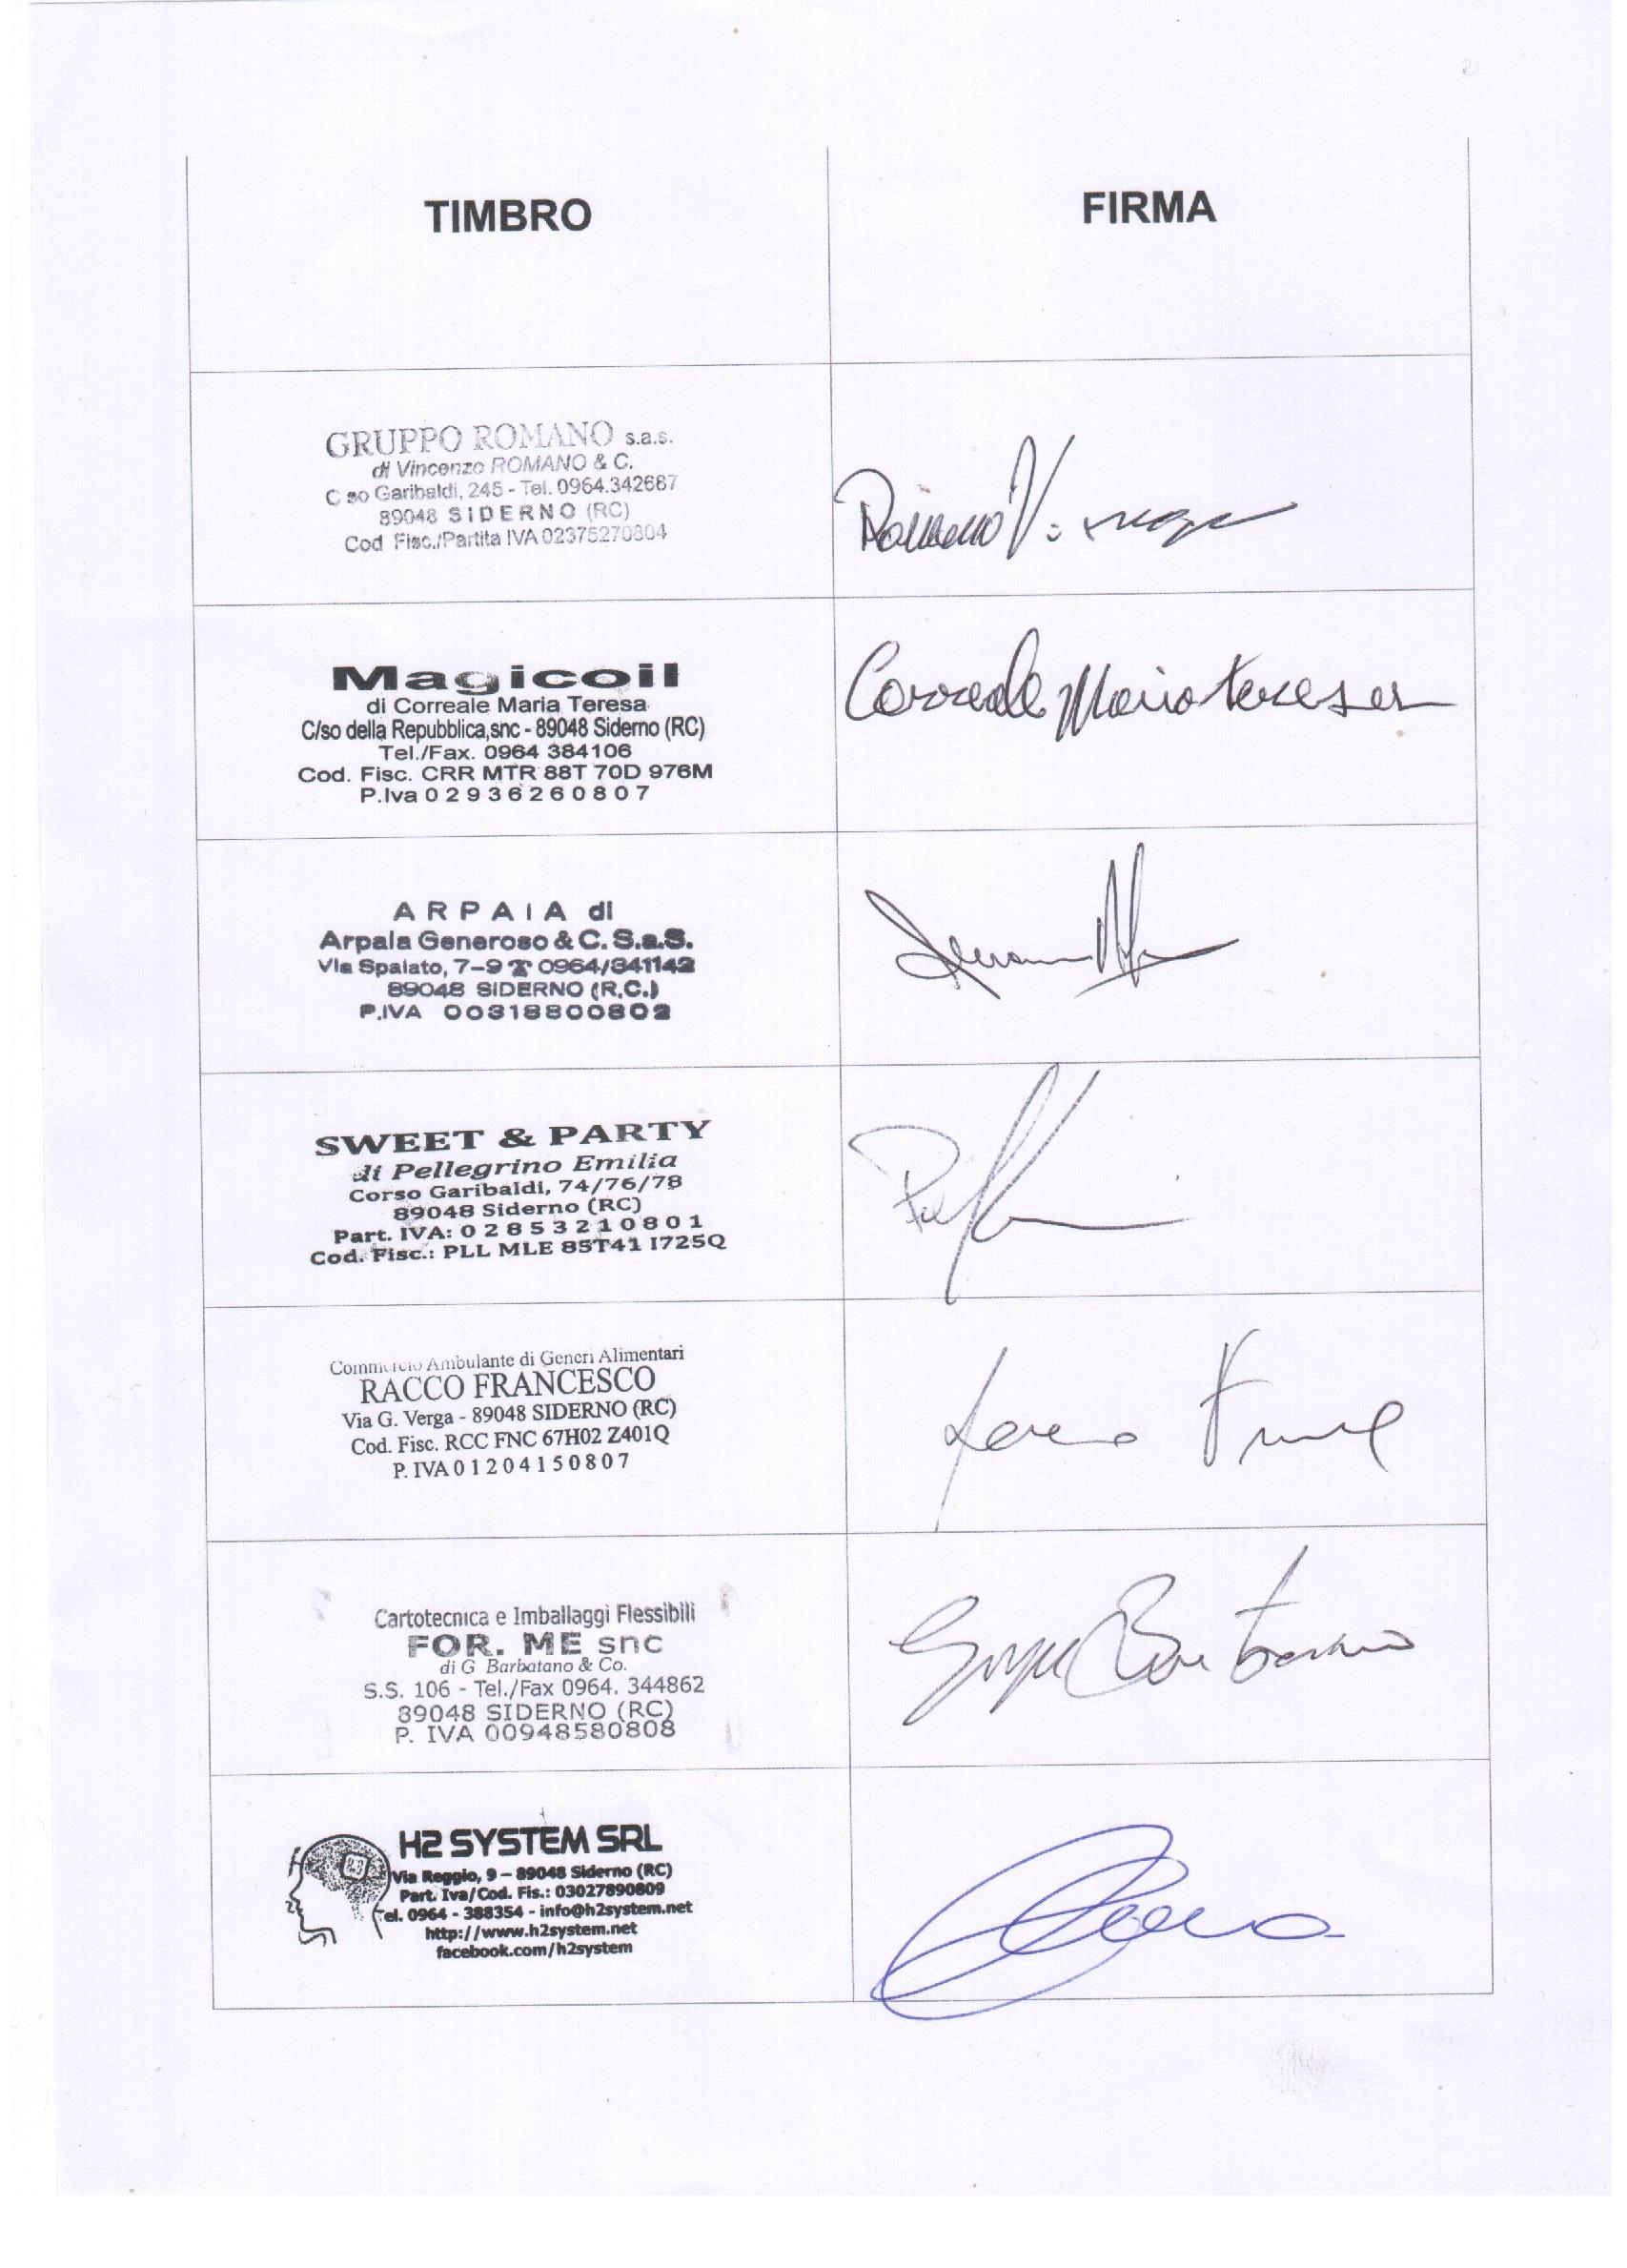 TIMBRO
FIRMA
GRUPPO ROMANO s.a.s.
di Vincenzo ROMANO & C.
C so Garibaldi, 245 - Tel. 0964.342687
89048 SIDERNO (RC)
Cod Fisc./Partita IVA 02375270804
Romano V.
Magicoil
di Correale Maria Teresa
C/so della Repubblica,snc - 89048 Siderno (RC)
Tel./Fax. 0964 384106
Cod. Fisc. CRR MTR 88T 70D 976M
P.Iva 0 2 9 3 6 2 6 0 8 0 7
Correale Maria Teresa
A R P A I A di
Arpaia Generoso & C. S.a.S.
Via Spalato, 7-9 ☎ 0964/341142
89048 SIDERNO (R.C.)
P.IVA 00318800802
SWEET & PARTY
di Pellegrino Emilia
Corso Garibaldi, 74/76/78
89048 Siderno (RC)
Part. IVA: 0 2 8 5 3 2 1 0 8 0 1
Cod. Fisc.: PLL MLE 85T41 I725Q
Commercio Ambulante di Generi Alimentari
RACCO FRANCESCO
Via G. Verga - 89048 SIDERNO (RC)
Cod. Fisc. RCC FNC 67H02 Z401Q
P. IVA 0 1 2 0 4 1 5 0 8 0 7
Cartotecnica e Imballaggi Flessibili
FOR. ME snc
di G Barbatano & Co.
S.S. 106 - Tel./Fax 0964. 344862
89048 SIDERNO (RC)
P. IVA 00948580808
H2 SYSTEM SRL
Via Reggio, 9 – 89048 Siderno (RC)
Part. Iva/Cod. Fis.: 03027890809
Tel. 0964 - 388354 - info@h2system.net
http://www.h2system.net
facebook.com/h2system